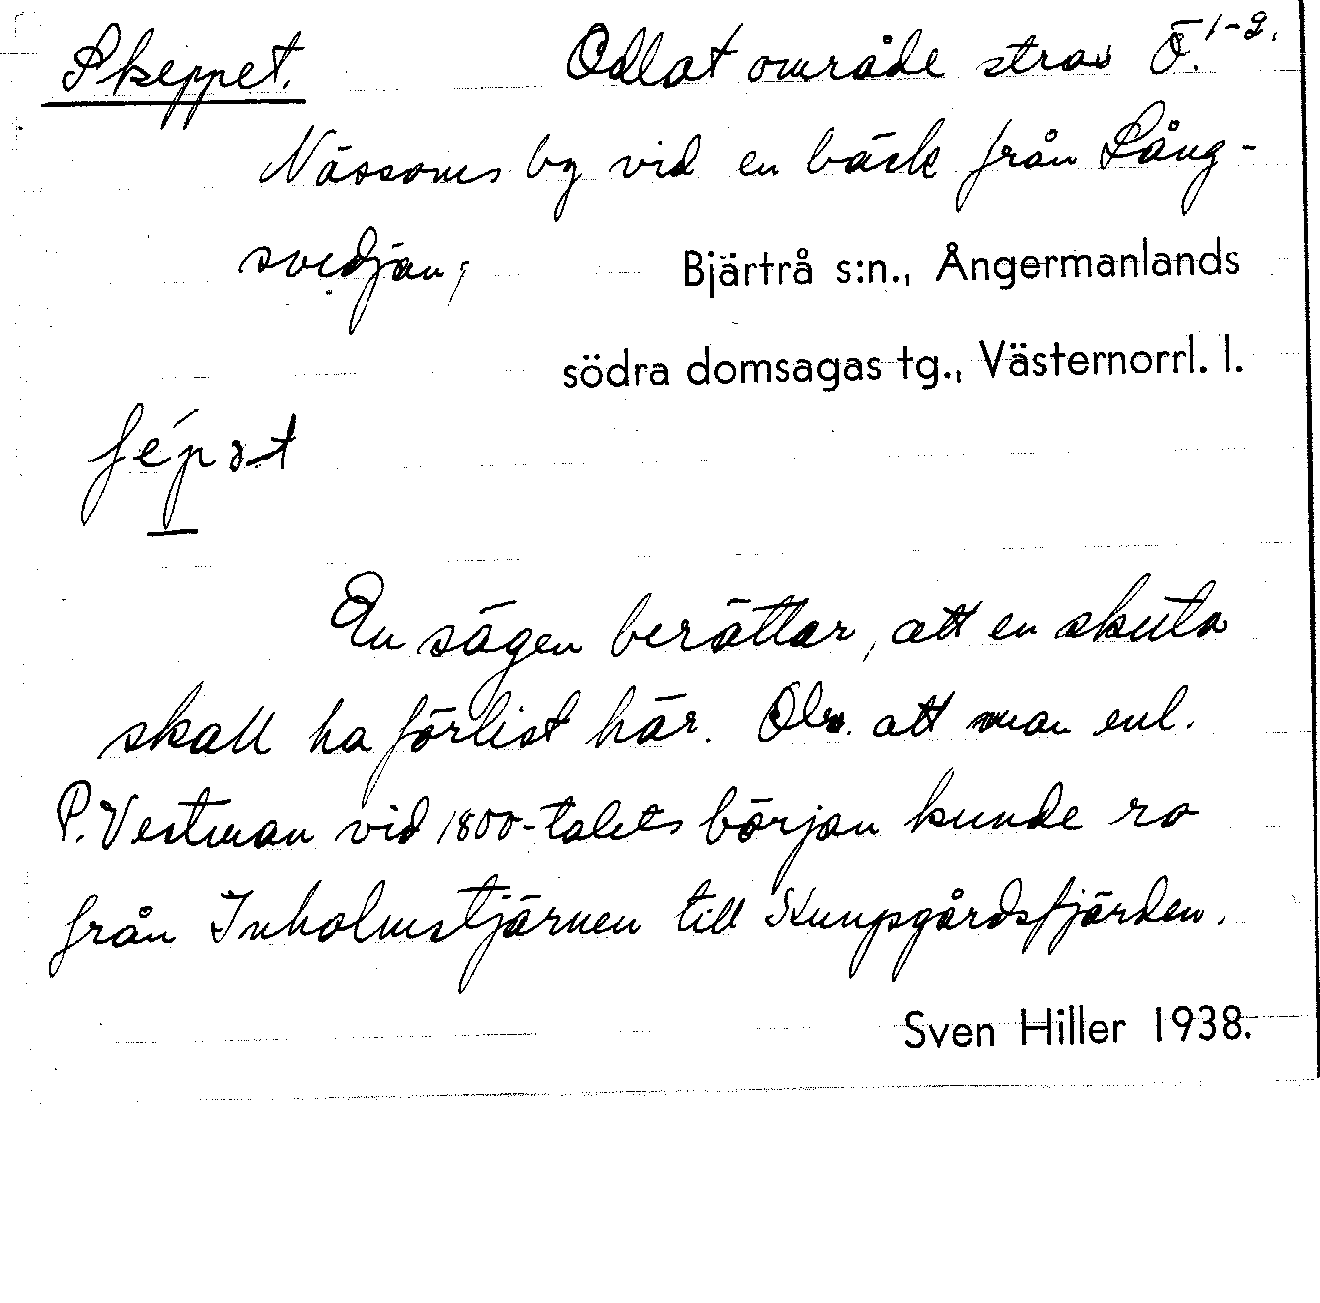 Skeppet. Odlat område strax Ö. 1-2.
Nässoms by vid en bäck från Lång-
svedjan;
Bjärtrå s:n., Ångermanlands
södra domsagas tg., Västernorrl. l.
ʃépət
En sägen berättar, att en skuta
skall ha förlist här. Obs. att man enl.
P. Vestman vid 1800-talets början kunde ro
från Inholmstjärnen till Kungsgårdsfjärden.
Sven Hiller 1938.